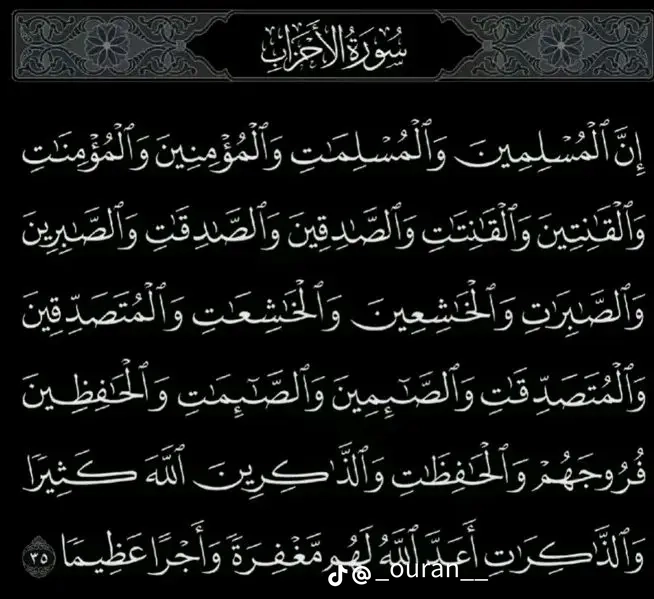 سُورَةُ الأَحْزَابِ
إِنَّ ٱلْمُسْلِمِينَ وَٱلْمُسْلِمَٰتِ وَٱلْمُؤْمِنِينَ وَٱلْمُؤْمِنَٰتِ
وَٱلْقَٰنِتِينَ وَٱلْقَٰنِتَٰتِ وَٱلصَّٰدِقِينَ وَٱلصَّٰدِقَٰتِ وَٱلصَّٰبِرِينَ
وَٱلصَّٰبِرَٰتِ وَٱلْخَٰشِعِينَ وَٱلْخَٰشِعَٰتِ وَٱلْمُتَصَدِّقِينَ
وَٱلْمُتَصَدِّقَٰتِ وَٱلصَّٰٓئِمِينَ وَٱلصَّٰٓئِمَٰتِ وَٱلْحَٰفِظِينَ
فُرُوجَهُمْ وَٱلْحَٰفِظَٰتِ وَٱلذَّٰكِرِينَ ٱللَّهَ كَثِيرًا
وَٱلذَّٰكِرَٰتِ أَعَدَّ ٱللَّهُ لَهُم مَّغْفِرَةً وَأَجْرًا عَظِيمًا ٣٥
@_ouran__